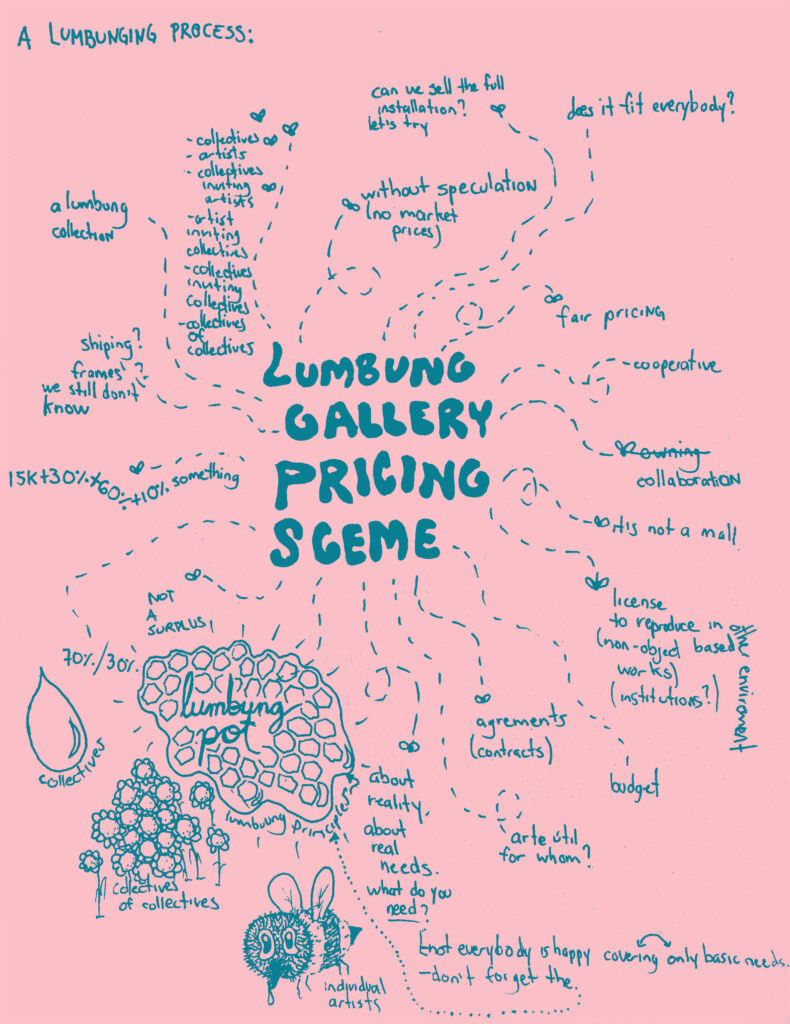 A LUMBUNGING PROCESS:
can we sell the full
installation?
let's try
does it fit everybody?
- collectives
- artists
- collectives
inviting
artists
- artist
inviting
collectives
- collectives
inviting
collectives
- collectives
of
collectives
without speculation
(no market
prices)
a lumbung
collection
fair pricing
shiping?
frames?
we still don't
know
LUMBUNG
GALLERY
PRICING
SCEME
- cooperative
owning
collaboration
15K+30%+60%+10% something
it is not a mall
license
to reproduce in other enviroment
(non-object based
works)
(institutions?)
NOT
A
SURPLUS!
70%/30%
lumbung
pot
collectives
lumbung principles
colectives
of collectives
agrements
(contracts)
budget
about
reality.
about
real
needs.
what do you
need?
arte útil
for whom?
not everybody is happy covering only basic needs.
- don't forget the
individual
artists